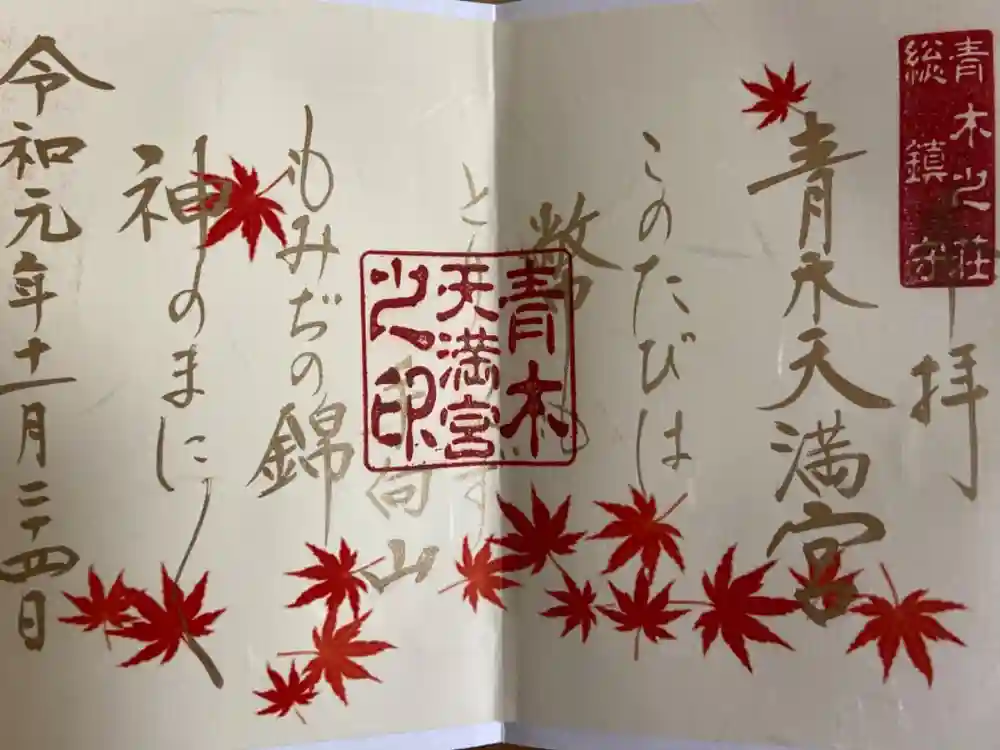 青木之荘
総鎮守
奉拝
青木天満宮
このたびは
幣も
とりあへず
手向山
もみぢの錦
神のまに〱
令和元年十一月二十四日
青木
天満宮
之印